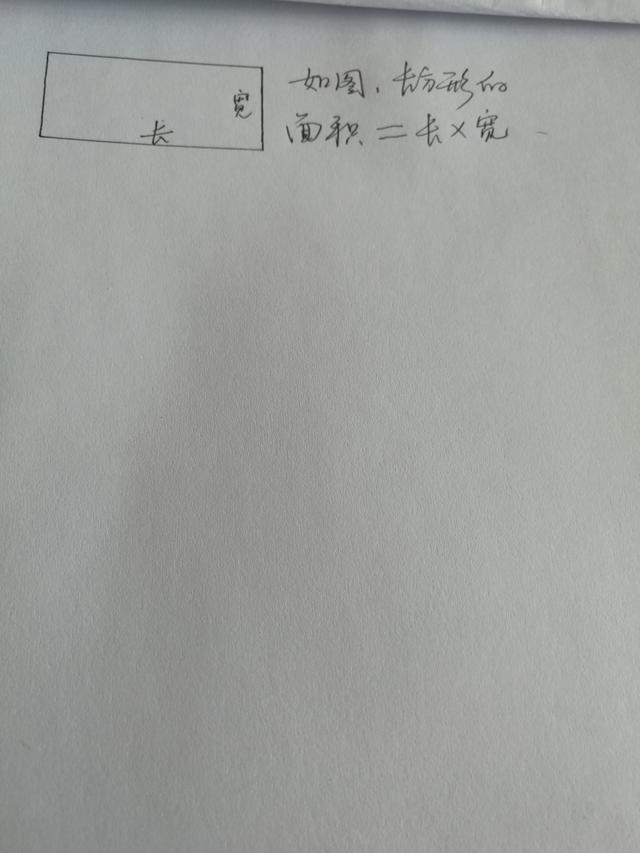 如图，长方形的
宽
面积=长×宽
长